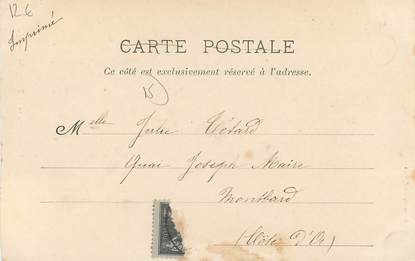 12 €
Imprimé
CARTE POSTALE
Ce côté est exclusivement réservé à l'adresse.
15
Melle Julie Tétard
Quai Joseph Maire
Montbard
(Côte d'Or)